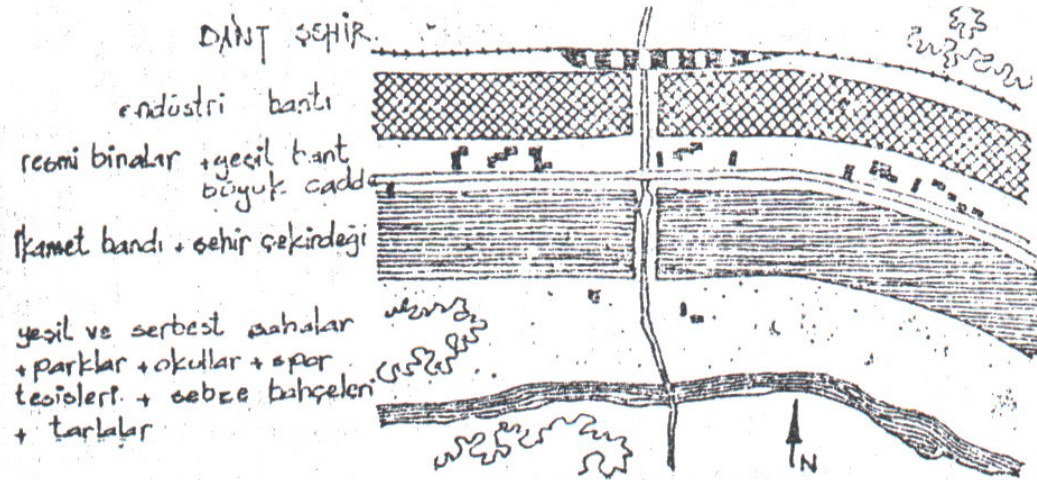 BANT ŞEHİR.
endüstri bantı
resmi binalar + yeşil bant
büyük cadde
İkamet bandı + şehir çekirdeği
yeşil ve serbest sahalar
+ parklar + okullar + spor
tesisleri + sebze bahçeleri
+ tarlalar
N